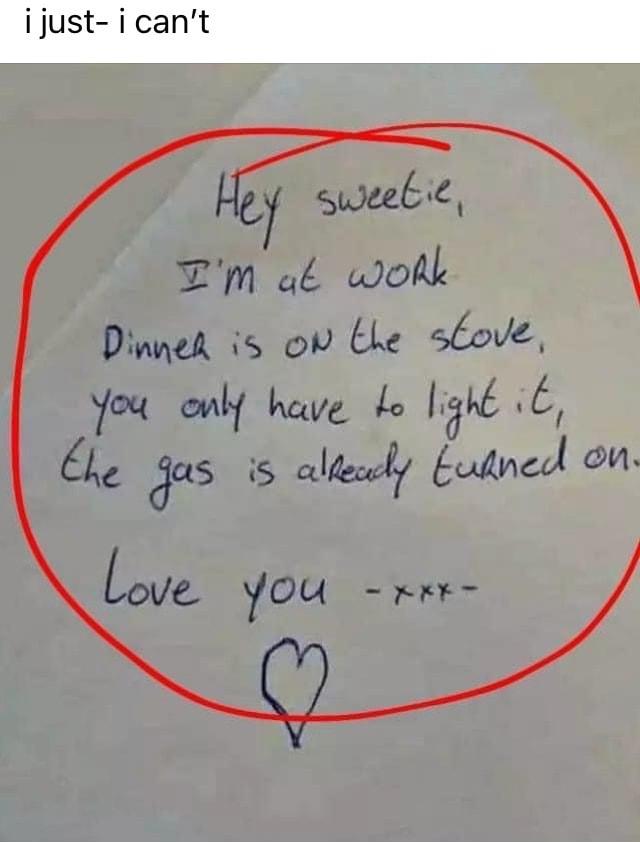 i just- i can't
Hey sweetie,
I'm at work
Dinner is on the stove,
you only have to light it,
the gas is already turned on.
Love you -xxx-